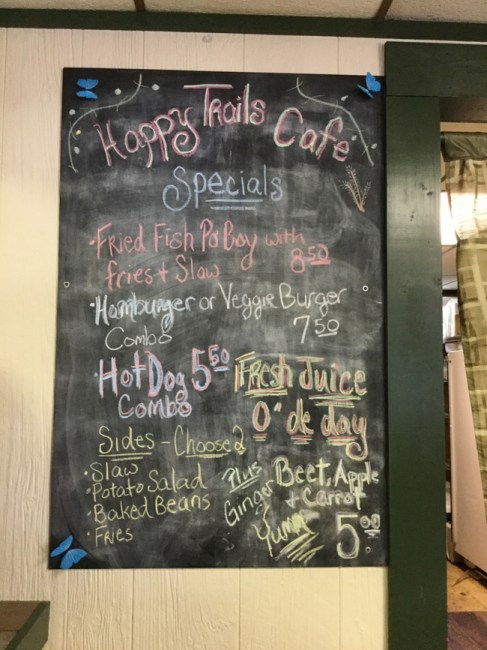 Happy Trails Cafe
Specials
• Fried Fish Po Boy with
fries + Slaw 8.50
• Hamburger or Veggie Burger
Combo 7.50
• Hot Dog 5.50
Combo
Fresh Juice
O' de day
Sides - Choose 2
• Slaw
• Potato Salad
• Baked Beans
• Fries
Plus
Ginger Beet, Apple
+ Carrot
Yumm 5.00